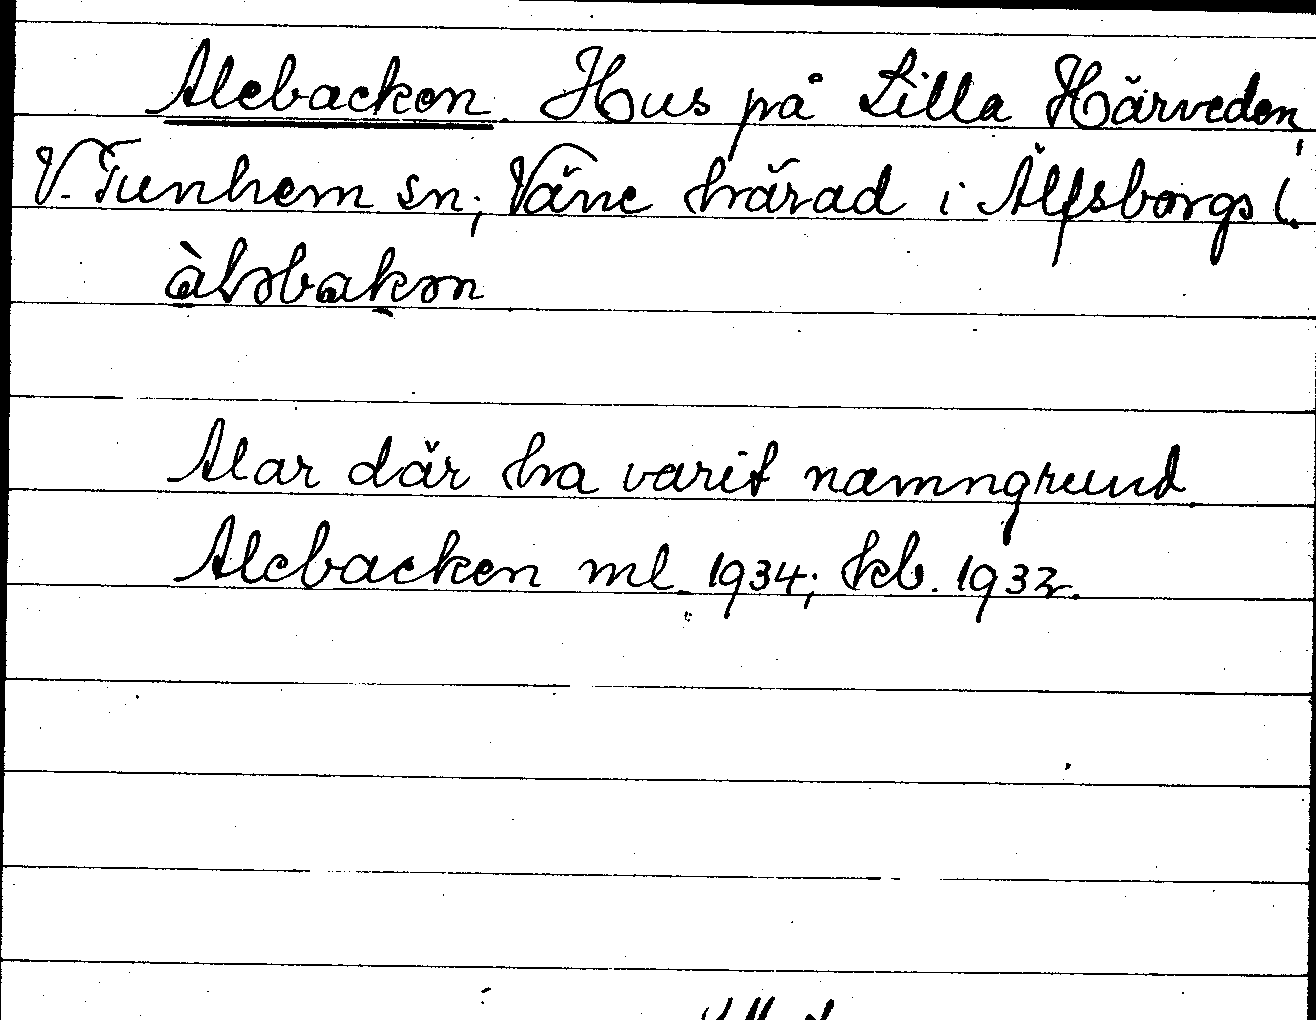 Alebacken. Hus på Lilla Härveden,
V. Tunhem sn; Väne härad i Älfsborgs l.
àləbakən
Alar där ha varit namngrund.
Alebacken ml. 1934; kb. 1932.